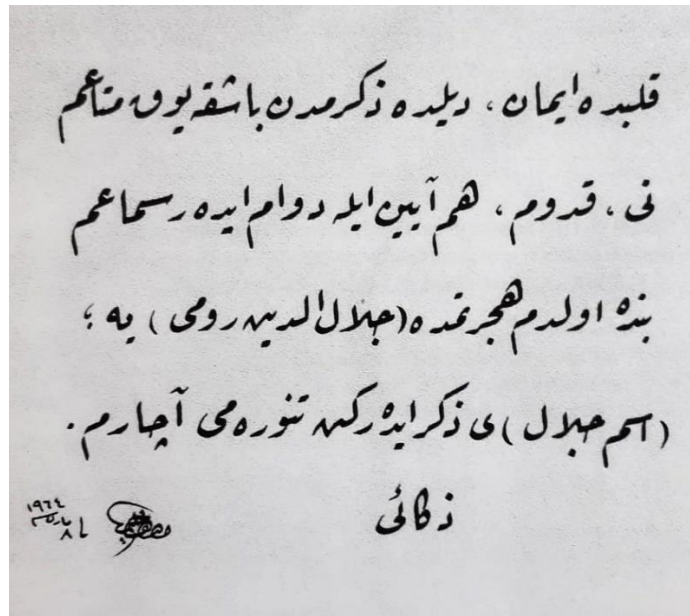 قلبده ایمان، دیلده ذکرمدن باشقه یوق متاعم
نی، قدوم، هم آیین ایله دوام ایده ر سماعم
بنده اولدم هجرتمده (جلال الدین رومی) یه؛
(اسم جلال)ی ذکر ایده رکن تنوره می آچارم.
ذکائی
١٩٦٤